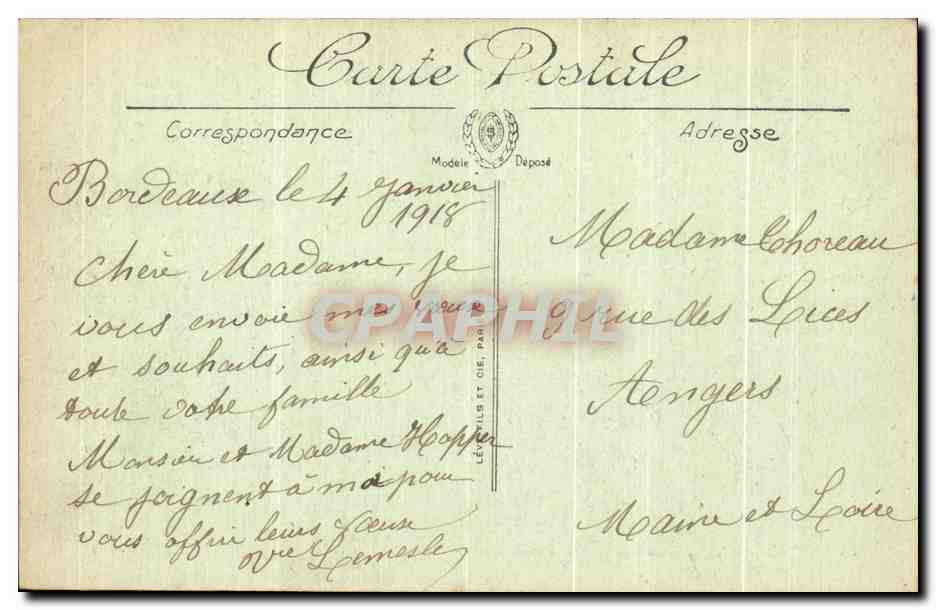 Carte Postale
Correspondance
Adresse
Modèle Déposé
Bordeaux le 4 Janvier
1918
Chère Madame, je
vous envoie mes vœux
et souhaits, ainsi qu'à
toute votre famille
Monsieur et Madame Hopper
se joignent à moi pour
vous offrir leurs vœux
Vve Lemesle
LÉVY FILS ET CIE, PARIS
CPAPHIL
Madame Thoreau
9 rue des Lices
Angers
Maine et Loire